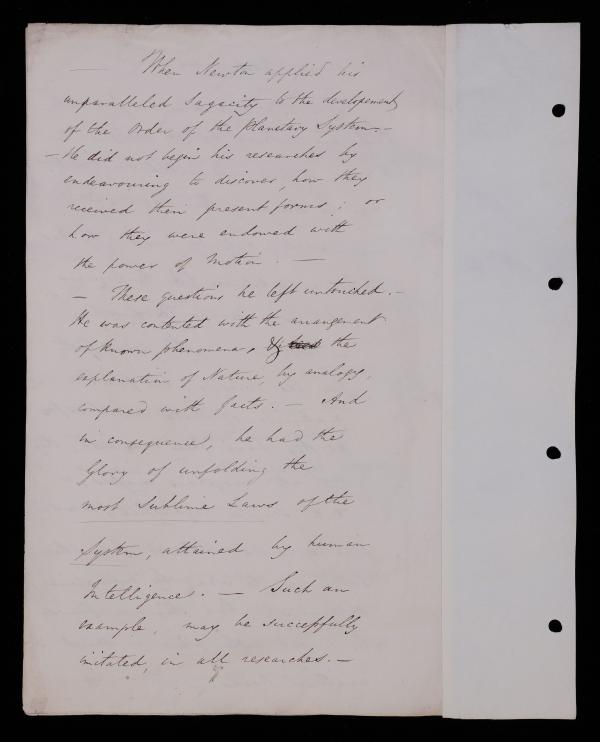 — When Newton applied his
unparalleled Sagacity to the developement
of the Order of the Planetary System. —
— He did not begin his researches by
endeavouring to discover, how they
received their present forms; or
how they were endowed with
the power of Motion. —
— These questions he left untouched. —
He was contented with the arrangement
of known phenomena, & the
explanation of Nature, by analogy,
compared with facts. — And
in consequence, he had the
Glory of unfolding the
most Sublime Laws of the
System, attained by human
Intelligence. — Such an
example, may be successfully
imitated, in all researches. —